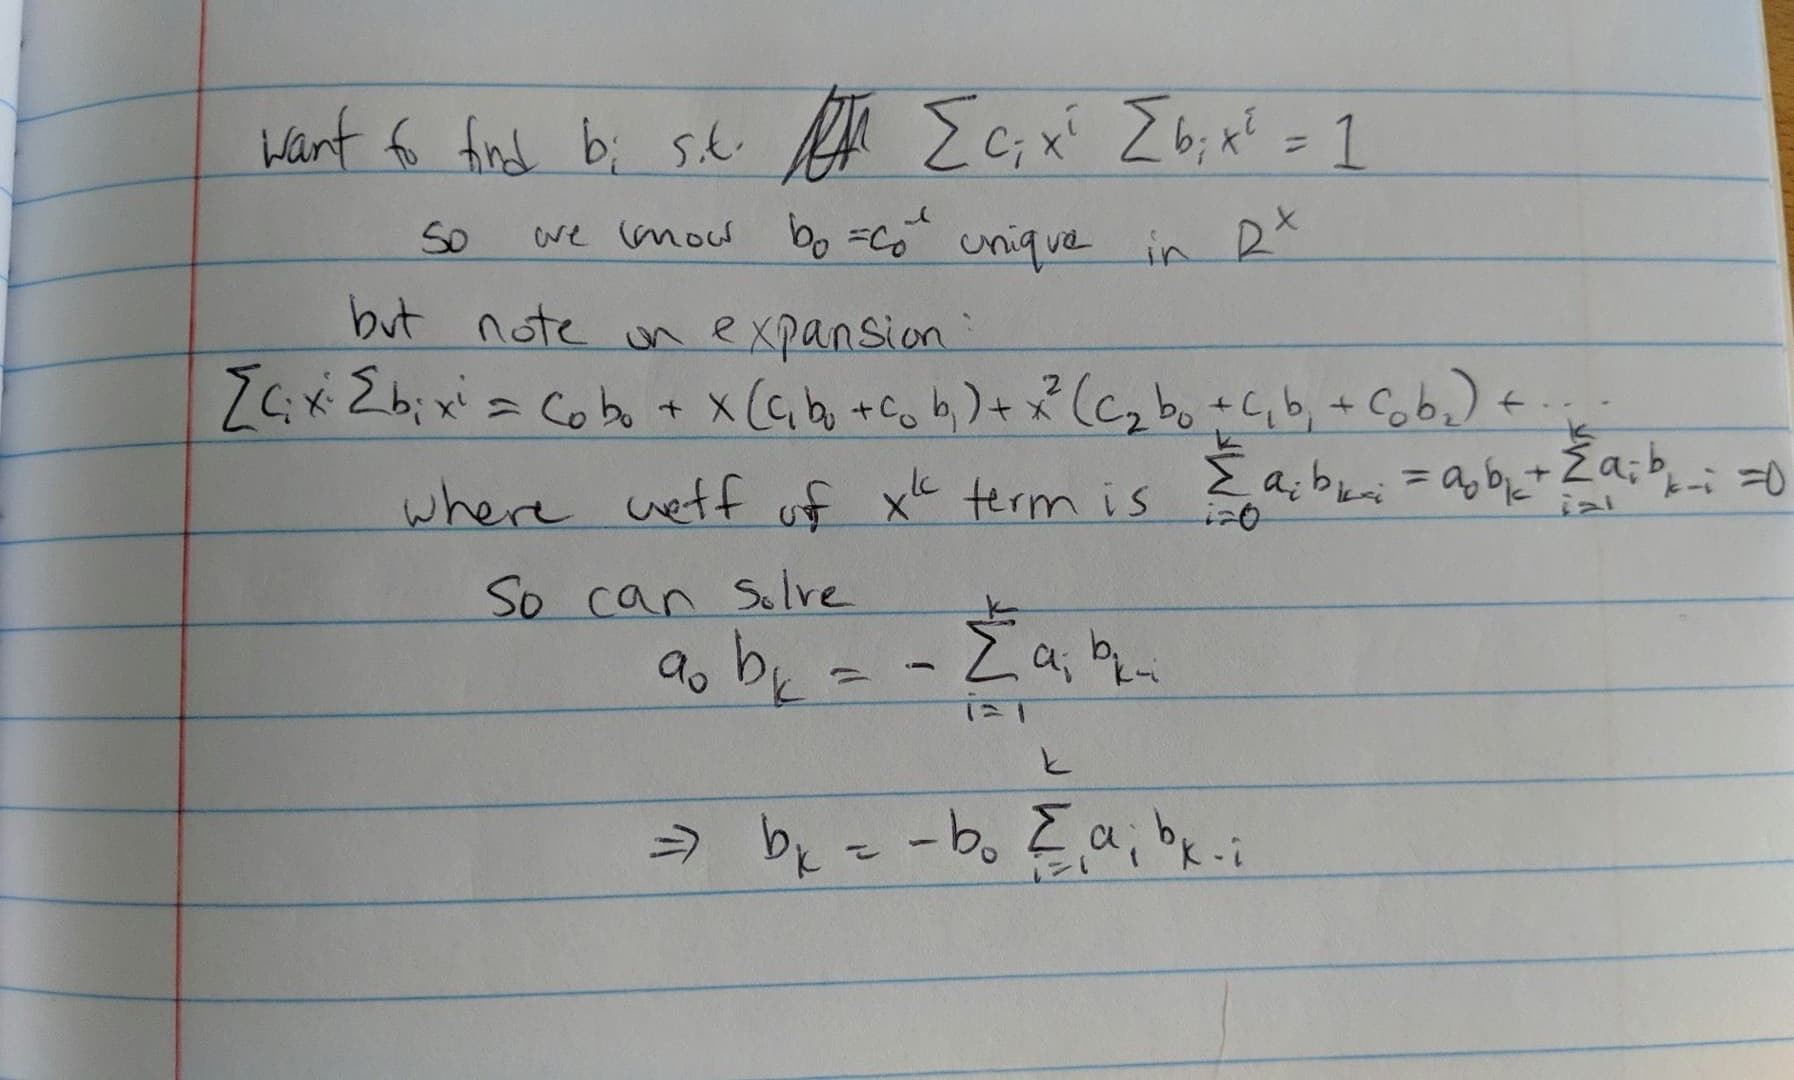 Want to find bᵢ s.t. Σcᵢxⁱ Σbᵢxⁱ = 1
so we know b₀ = c₀⁻¹ unique in R^x
but note on expansion:
Σcᵢxⁱ Σbᵢxⁱ = c₀b₀ + x(c₁b₀ + c₀b₁) + x²(c₂b₀ + c₁b₁ + c₀b₂) + ....
where coeff of xᵏ term is Σ_{i=0}^{k} aᵢb_{k-i} = a₀b_k + Σ_{i=1}^{k} aᵢb_{k-i} = 0
So can solve
a₀b_k = - Σ_{i=1}^{k} aᵢb_{k-i}
⇒ b_k = -b₀ Σ_{i=1}^{k} aᵢb_{k-i}